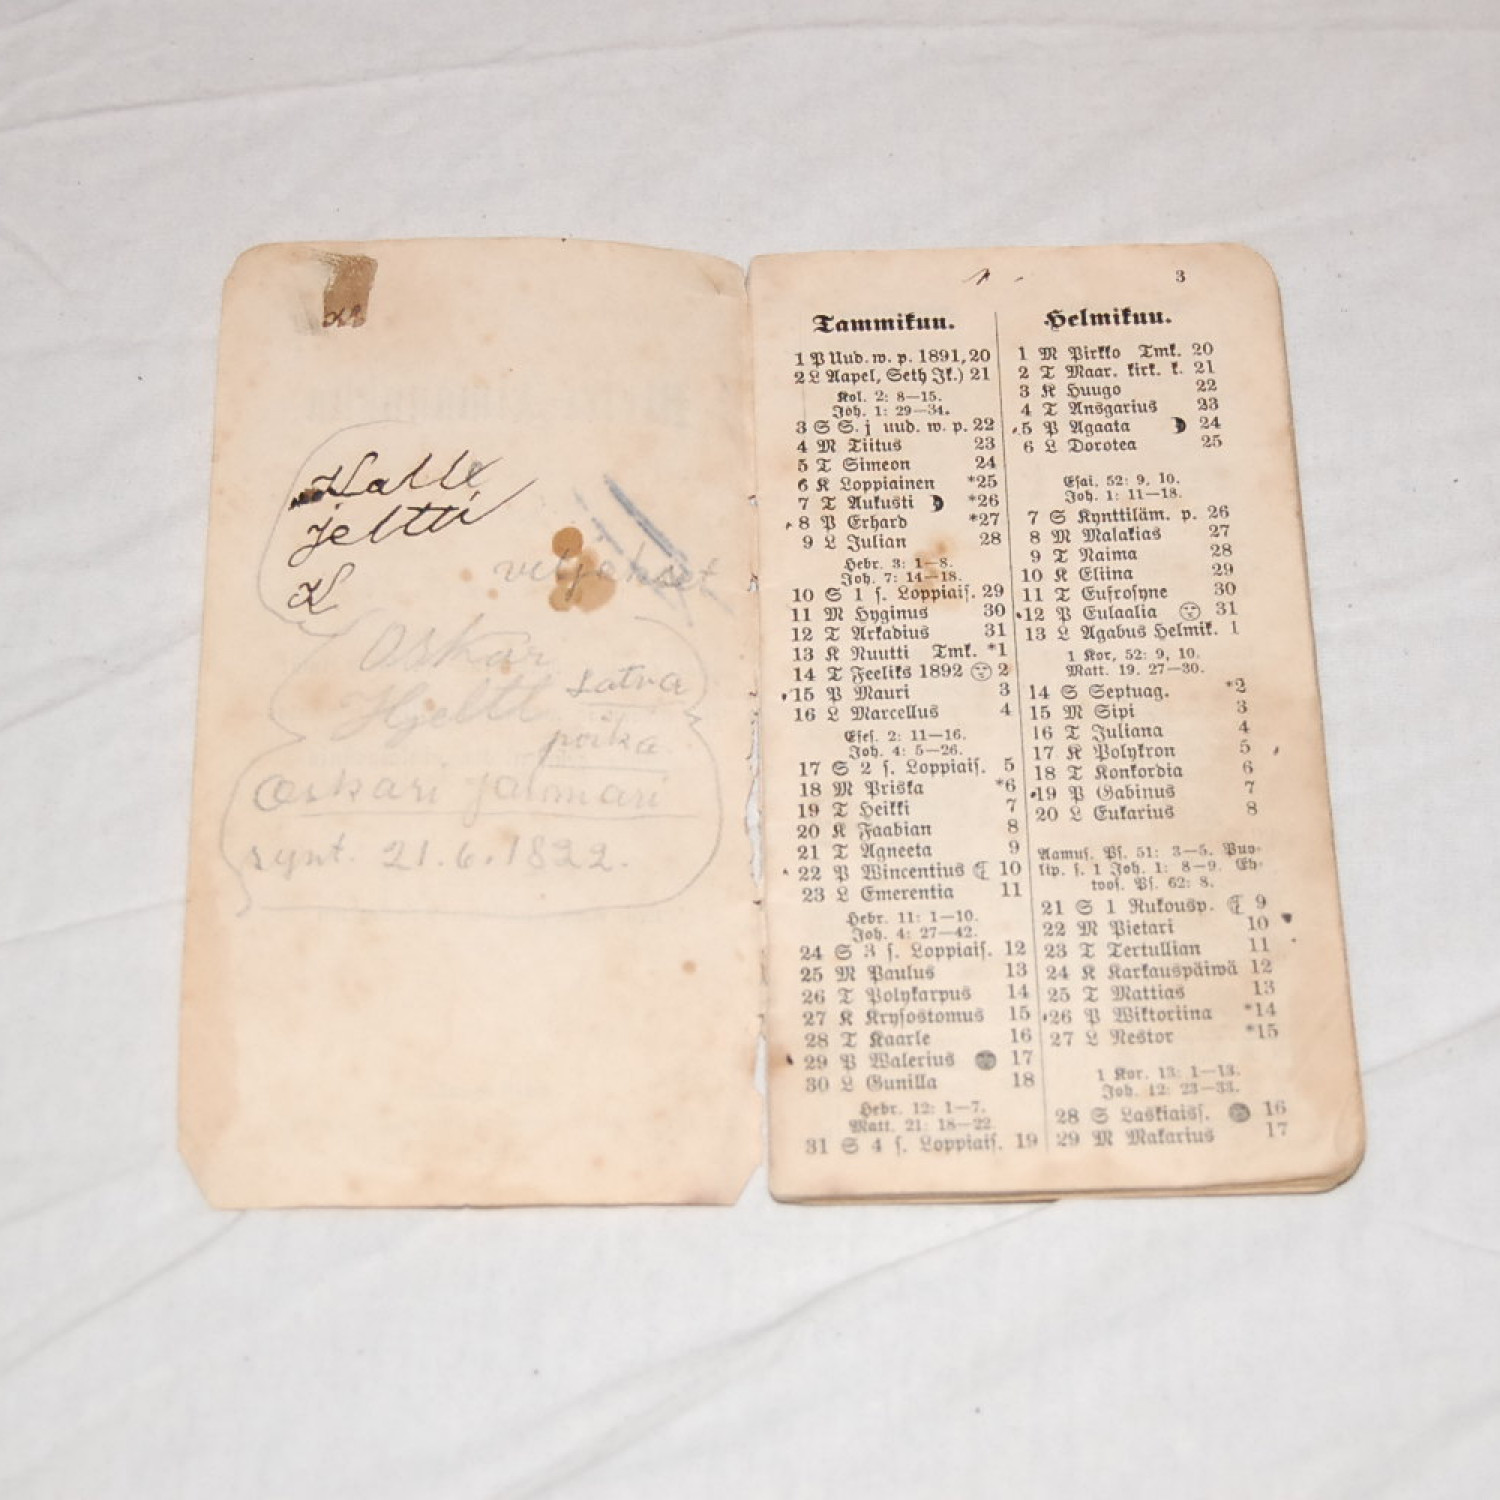 Kalle
jeltti
K
veljekset
Oskar
Hjeltt
satva
poika
Oskari jalmari
synt. 21.6.1892.
3
Tammikuu.
1 P Uud. w. p. 1891, 20
2 L Aapel, Seth Jk.) 21
Kol. 2: 8—15.
Joh. 1: 29—34.
3 S S. j uud. w. p. 22
4 M Tiitus 23
5 T Simeon 24
6 K Loppiainen *25
7 T Aukusti *26
8 P Erhard *27
9 L Julian 28
Hebr. 3: 1—8.
Joh. 7: 14—18.
10 S 1 s. Loppiais. 29
11 M Hyginus 30
12 T Arkadius 31
13 K Nuutti Tmk. *1
14 T Feeliks 1892 2
15 P Mauri 3
16 L Marcellus 4
Efes. 2: 11—16.
Joh. 4: 5—26.
17 S 2 s. Loppiais. 5
18 M Priska *6
19 T Heikki 7
20 K Faabian 8
21 T Agneeta 9
22 P Wincentius 10
23 L Emerentia 11
Hebr. 11: 1—10.
Joh. 4: 27—42.
24 S 3 s. Loppiais. 12
25 M Paulus 13
26 T Polykarpus 14
27 K Krysostomus 15
28 T Kaarle 16
29 P Walerius 17
30 L Gunilla 18
Hebr. 12: 1—7.
Matt. 21: 18—22.
31 S 4 s. Loppiais. 19
Helmikuu.
1 M Pirkko Tmk. 20
2 T Maar. kirk. k. 21
3 K Huugo 22
4 T Ansgarius 23
5 P Agaata 24
6 L Dorotea 25
Esai. 52: 9, 10.
Joh. 1: 11—18.
7 S Kynttiläm. p. 26
8 M Malakias 27
9 T Naima 28
10 K Eliina 29
11 T Eufrosyne 30
12 P Eulaalia 31
13 L Agabus Helmik. 1
1 Kor, 52: 9, 10.
Matt. 19. 27—30.
14 S Septuag. *2
15 M Sipi 3
16 T Juliana 4
17 K Polykron 5
18 T Konkordia 6
19 P Gabinus 7
20 L Eukarius 8
Aamus. Ps. 51: 3—5. Puo-
lip. s. 1 Joh. 1: 8—9. Eh-
toos. Ps. 62: 8.
21 S 1 Rukousp. 9
22 M Pietari 10
23 T Tertullian 11
24 K Karkauspäiwä 12
25 T Mattias 13
26 P Wiktoriina *14
27 L Nestor *15
1 Kor. 13: 1—13.
Joh. 12: 23—33.
28 S Laskiaiss. 16
29 M Makarius 17